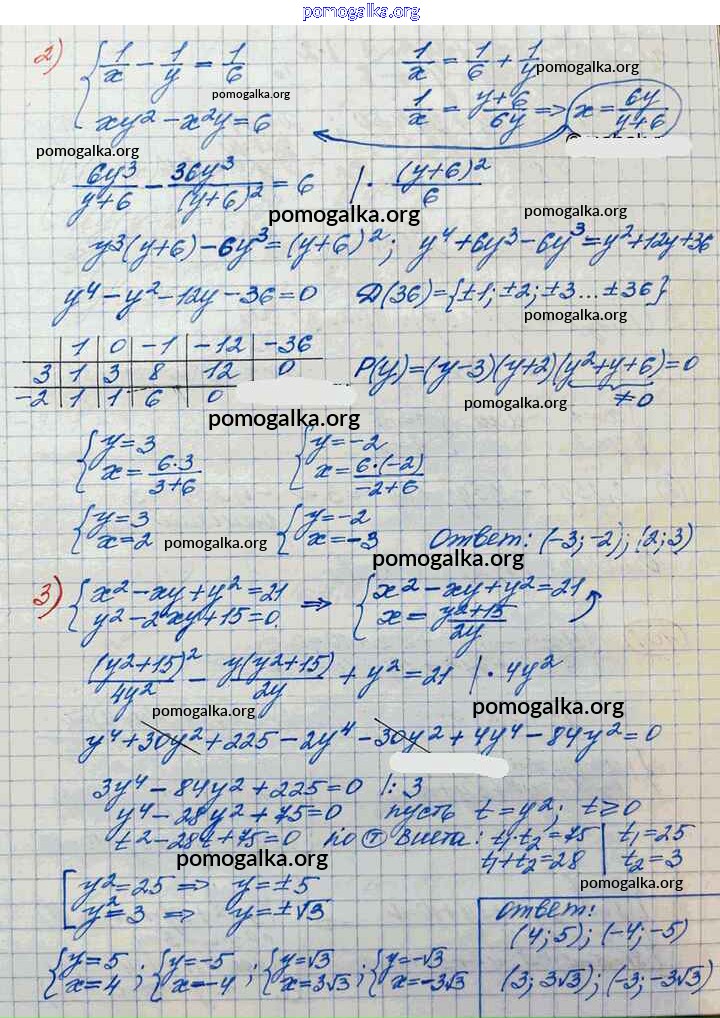 pomogalka.org
2) { 1/x - 1/y = 1/6    1/x = 1/6 + 1/y pomogalka.org
pomogalka.org
xy² - x²y = 6    1/x = (y+6)/6y => x = 6y/(y+6)
pomogalka.org
6y³/(y+6) - 36y³/(y+6)² = 6 | · (y+6)²/6
pomogalka.org pomogalka.org
y³(y+6) - 6y³ = (y+6)²; y⁴+6y³-6y³=y²+12y+36
pomogalka.org
y⁴ - y² - 12y - 36 = 0    D(36) = {±1; ±2; ±3 ... ±36}
pomogalka.org
| 1 | 0 | -1 | -12 | -36
3 | 1 | 3 | 8 | 12 | 0    P(y)=(y-3)(y+2)(y²+y+6)=0
-2 | 1 | 1 | 6 | 0    ≠0
pomogalka.org pomogalka.org
{ y=3    { y=-2
x = 6·3/(3+6)    x = 6·(-2)/(-2+6)
{ y=3    { y=-2
x=2 pomogalka.org x=-3    Ответ: (-3;-2); (2;3)
pomogalka.org
3) { x² - xy + y² = 21 => { x² - xy + y² = 21
y² - 2xy + 15 = 0.    x = (y²+15)/2y
(y²+15)²/4y² - y(y²+15)/2y + y² = 21 | · 4y²
pomogalka.org pomogalka.org
y⁴ + 30y² + 225 - 2y⁴ - 30y² + 4y⁴ - 84y² = 0
3y⁴ - 84y² + 225 = 0 |: 3
y⁴ - 28y² + 75 = 0    пусть t = y²; t ≥ 0
t² - 28t + 75 = 0 по Т Виета: t₁·t₂ = 75 | t₁ = 25
t₁+t₂ = 28 | t₂ = 3
pomogalka.org pomogalka.org
[ y² = 25 => y = ±5
y² = 3 => y = ±√3
Ответ:
(4;5); (-4;-5)
(3; 3√3); (-3; -3√3)
{ y=5 ; { y=-5 ; { y=√3 ; { y=-√3
x=4    x=-4    x=3√3    x=-3√3